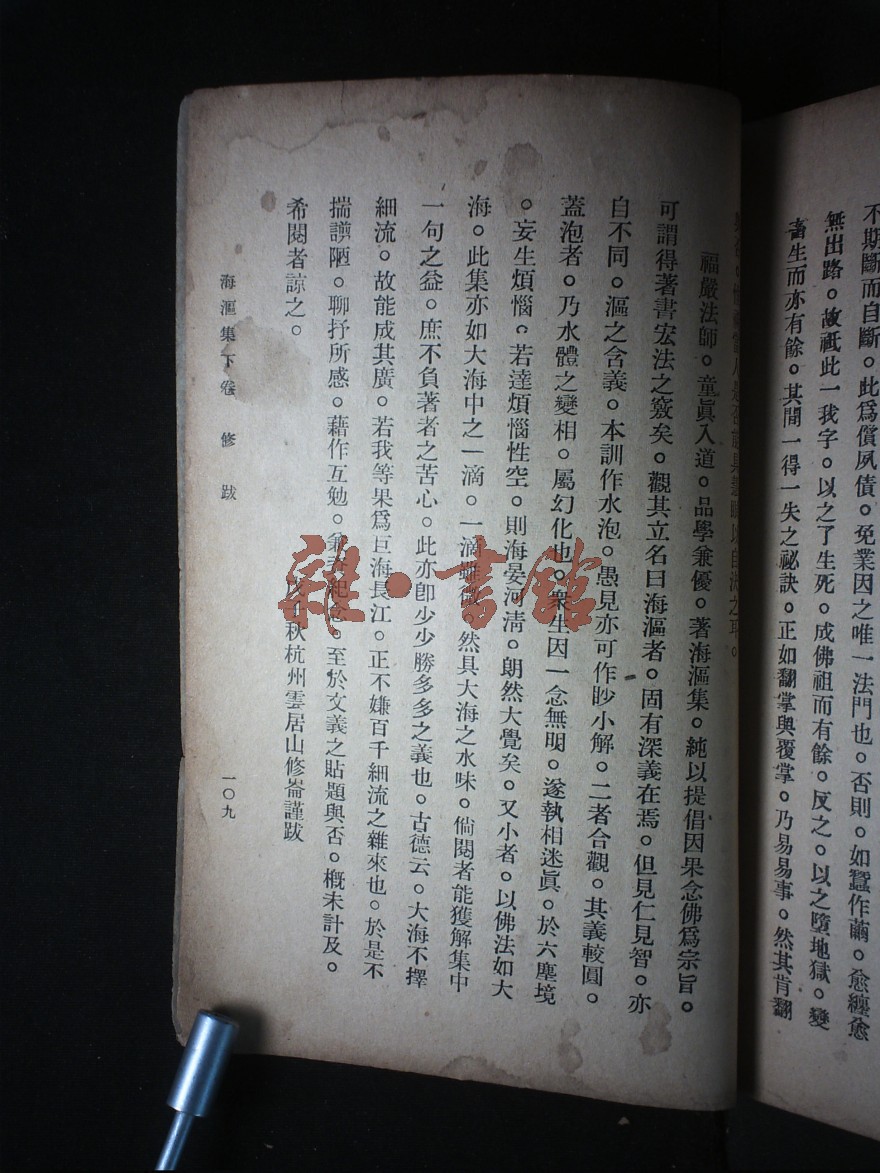 不期斷而自斷。此爲償夙債。免業因之唯一法門也。否則。如蠶作繭。愈纏愈
無出路。故祇此一我字。以之了生死。成佛祖而有餘。反之。以之墮地獄。變
畜生而亦有餘。其間一得一失之祕訣。正如翻掌與覆掌。乃易易事。然其肯翻
以自決之耳。
福嚴法師。童眞入道。品學兼優。著海漚集。純以提倡因果念佛爲宗旨。
可謂得著書宏法之竅矣。觀其立名曰海漚者。固有深義在焉。但見仁見智。亦
自不同。漚之含義。本訓作水泡。愚見亦可作眇小解。二者合觀。其義較圓。
蓋泡者。乃水體之變相。屬幻化也。衆生因一念無明。遂執相迷眞。於六塵境
。妄生煩惱。若達煩惱性空。則海晏河清。朗然大覺矣。又小者。以佛法如大
海。此集亦如大海中之一滴。一滴雖微。然具大海之水味。倘閱者能獲解集中
一句之益。庶不負著者之苦心。此亦卽少少勝多多之義也。古德云。大海不擇
細流。故能成其廣。若我等果爲巨海長江。正不嫌百千細流之雜來也。於是不
揣譾陋。聊抒所感。藉作互勉。兼 紀念。至於文義之貼題與否。概未計及。
希閱者諒之。
秋杭州雲居山修崙謹跋
海漚集下卷 修跋 一〇九
雜·書館